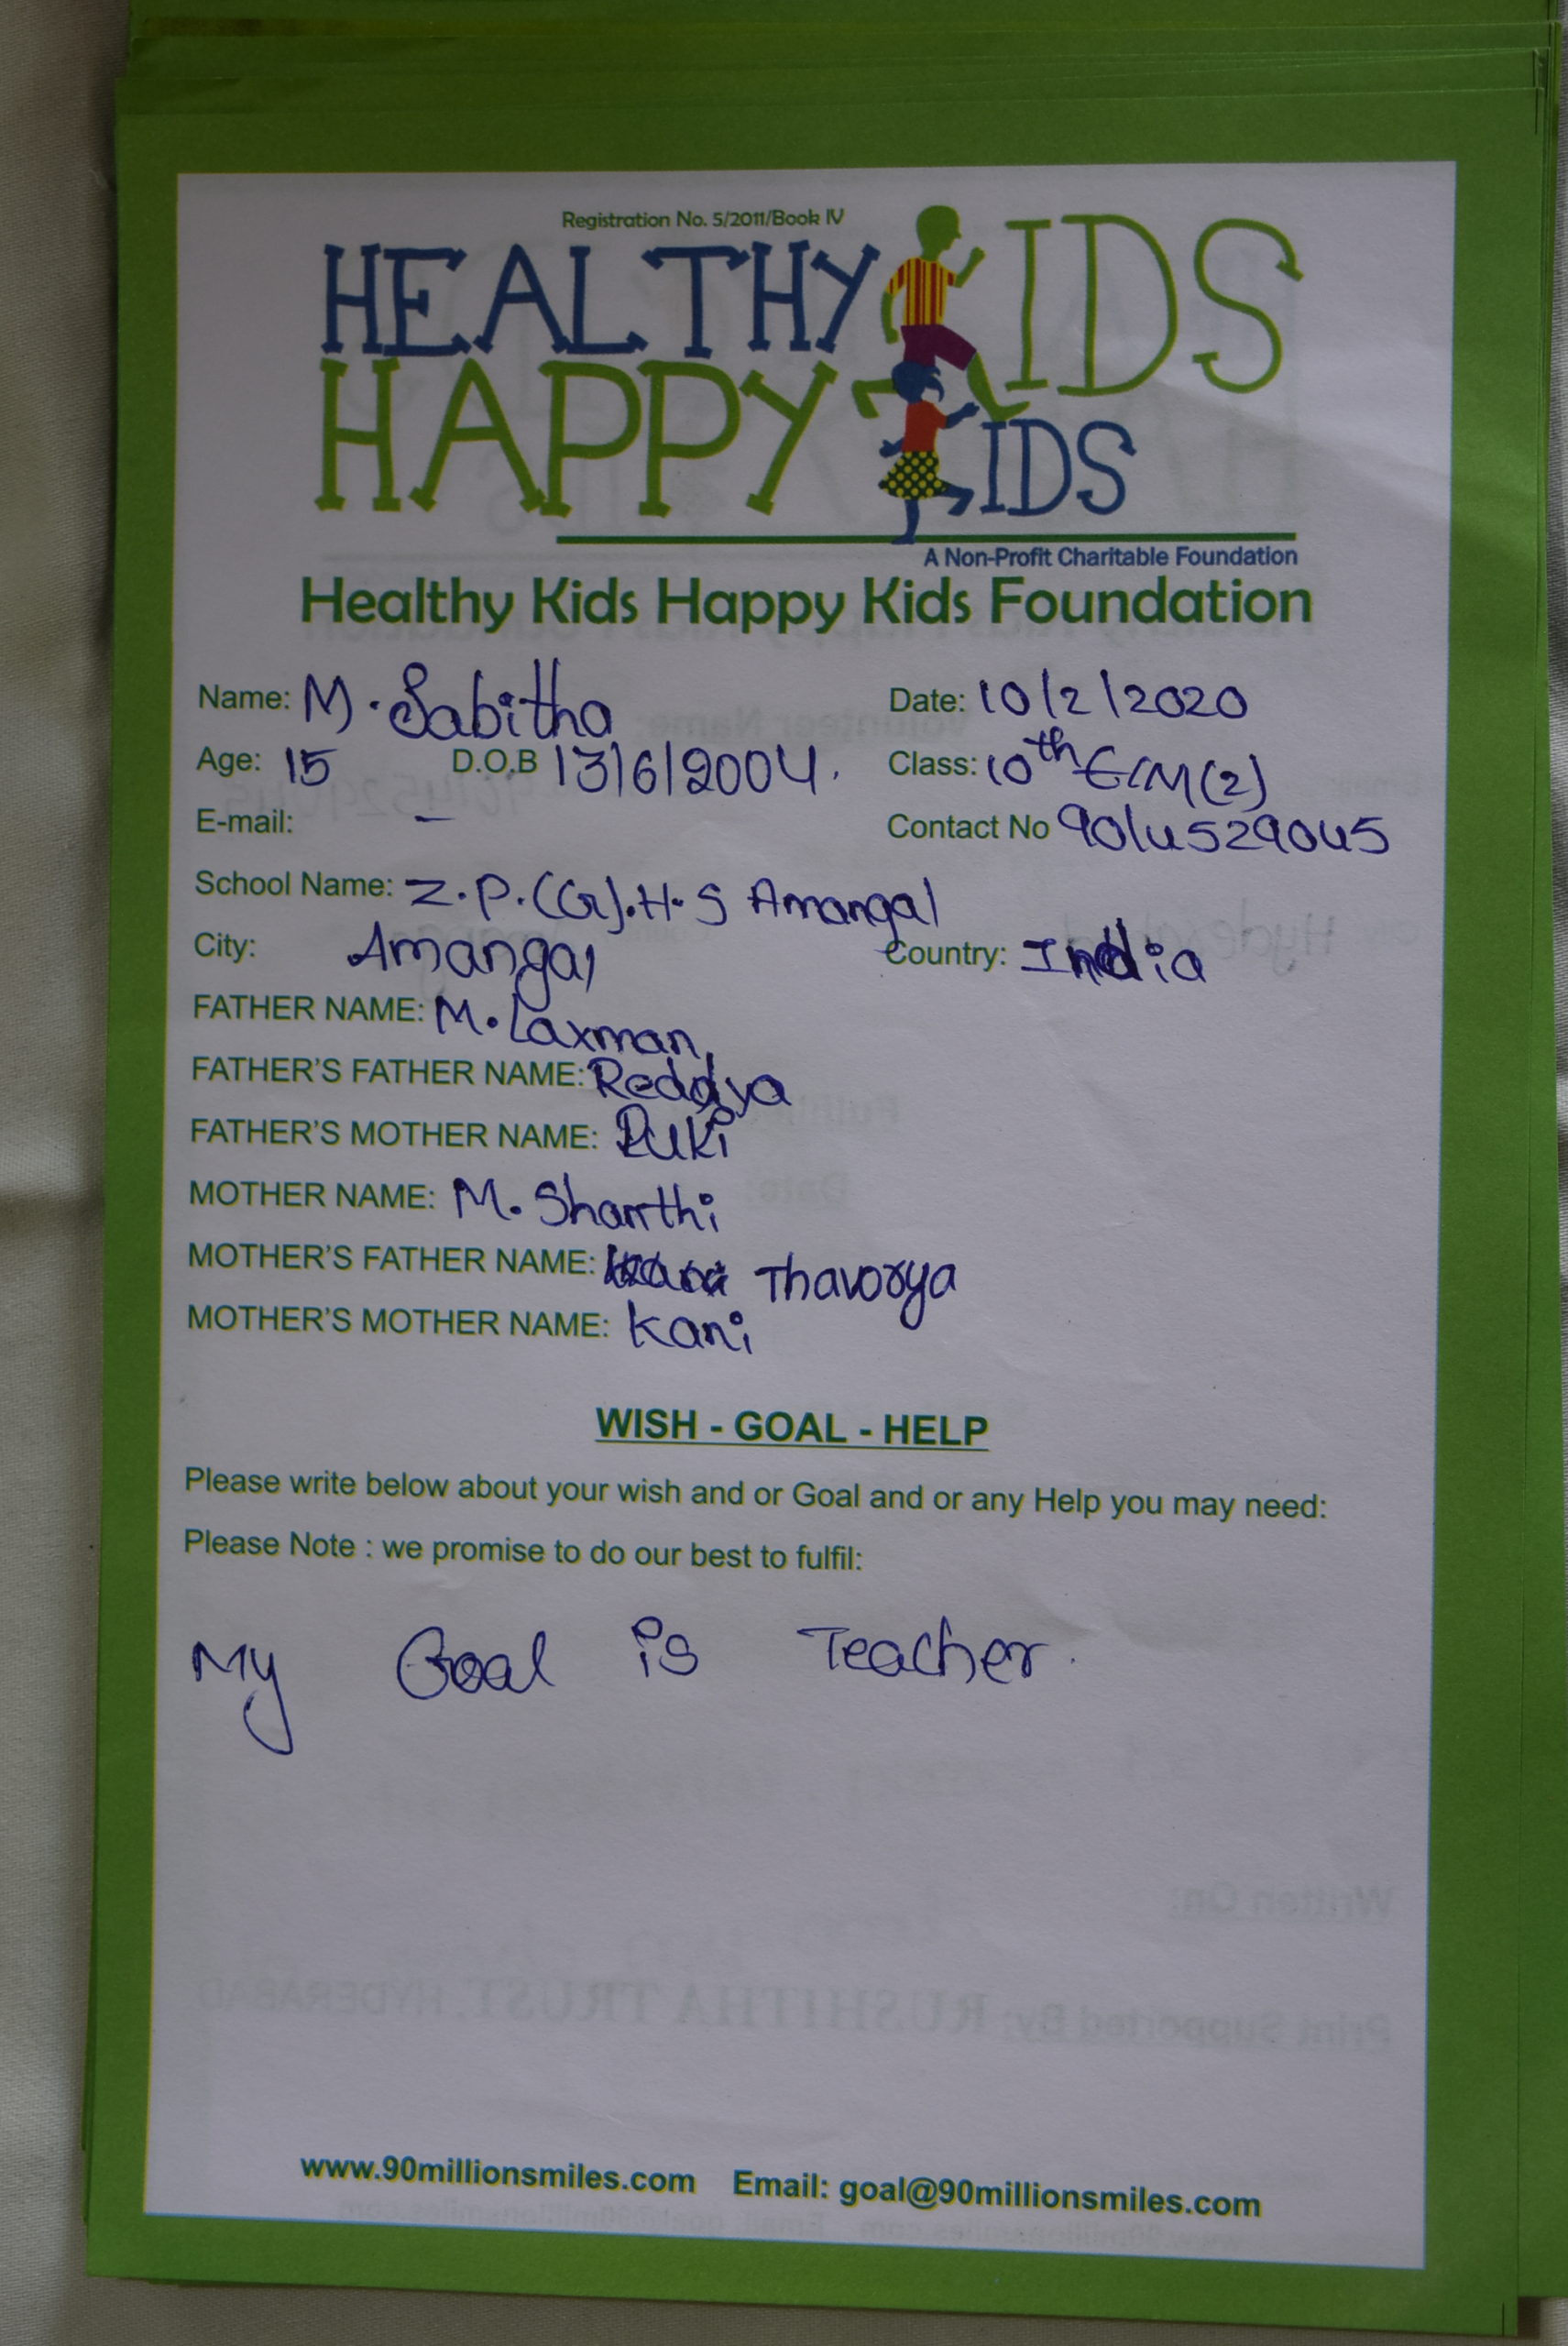 Registration No. 5/2011/Book IV
HEALTHY KIDS
HAPPY KIDS
A Non-Profit Charitable Foundation
Healthy Kids Happy Kids Foundation
Name: M. Sabitha Date: 10/2/2020
Age: 15 D.O.B 13/6/2004. Class: 10th E/M(2)
E-mail: - Contact No 9014529045
School Name: Z.P.(G).H.S Amangal
City: Amangal Country: India
FATHER NAME: M. Laxman
FATHER'S FATHER NAME: Reddya
FATHER'S MOTHER NAME: Puki
MOTHER NAME: M. Shanthi
MOTHER'S FATHER NAME: Thavorya
MOTHER'S MOTHER NAME: Kani
WISH - GOAL - HELP
Please write below about your wish and or Goal and or any Help you may need:
Please Note : we promise to do our best to fulfil:
My Goal is Teacher.
www.90millionsmiles.com Email: goal@90millionsmiles.com